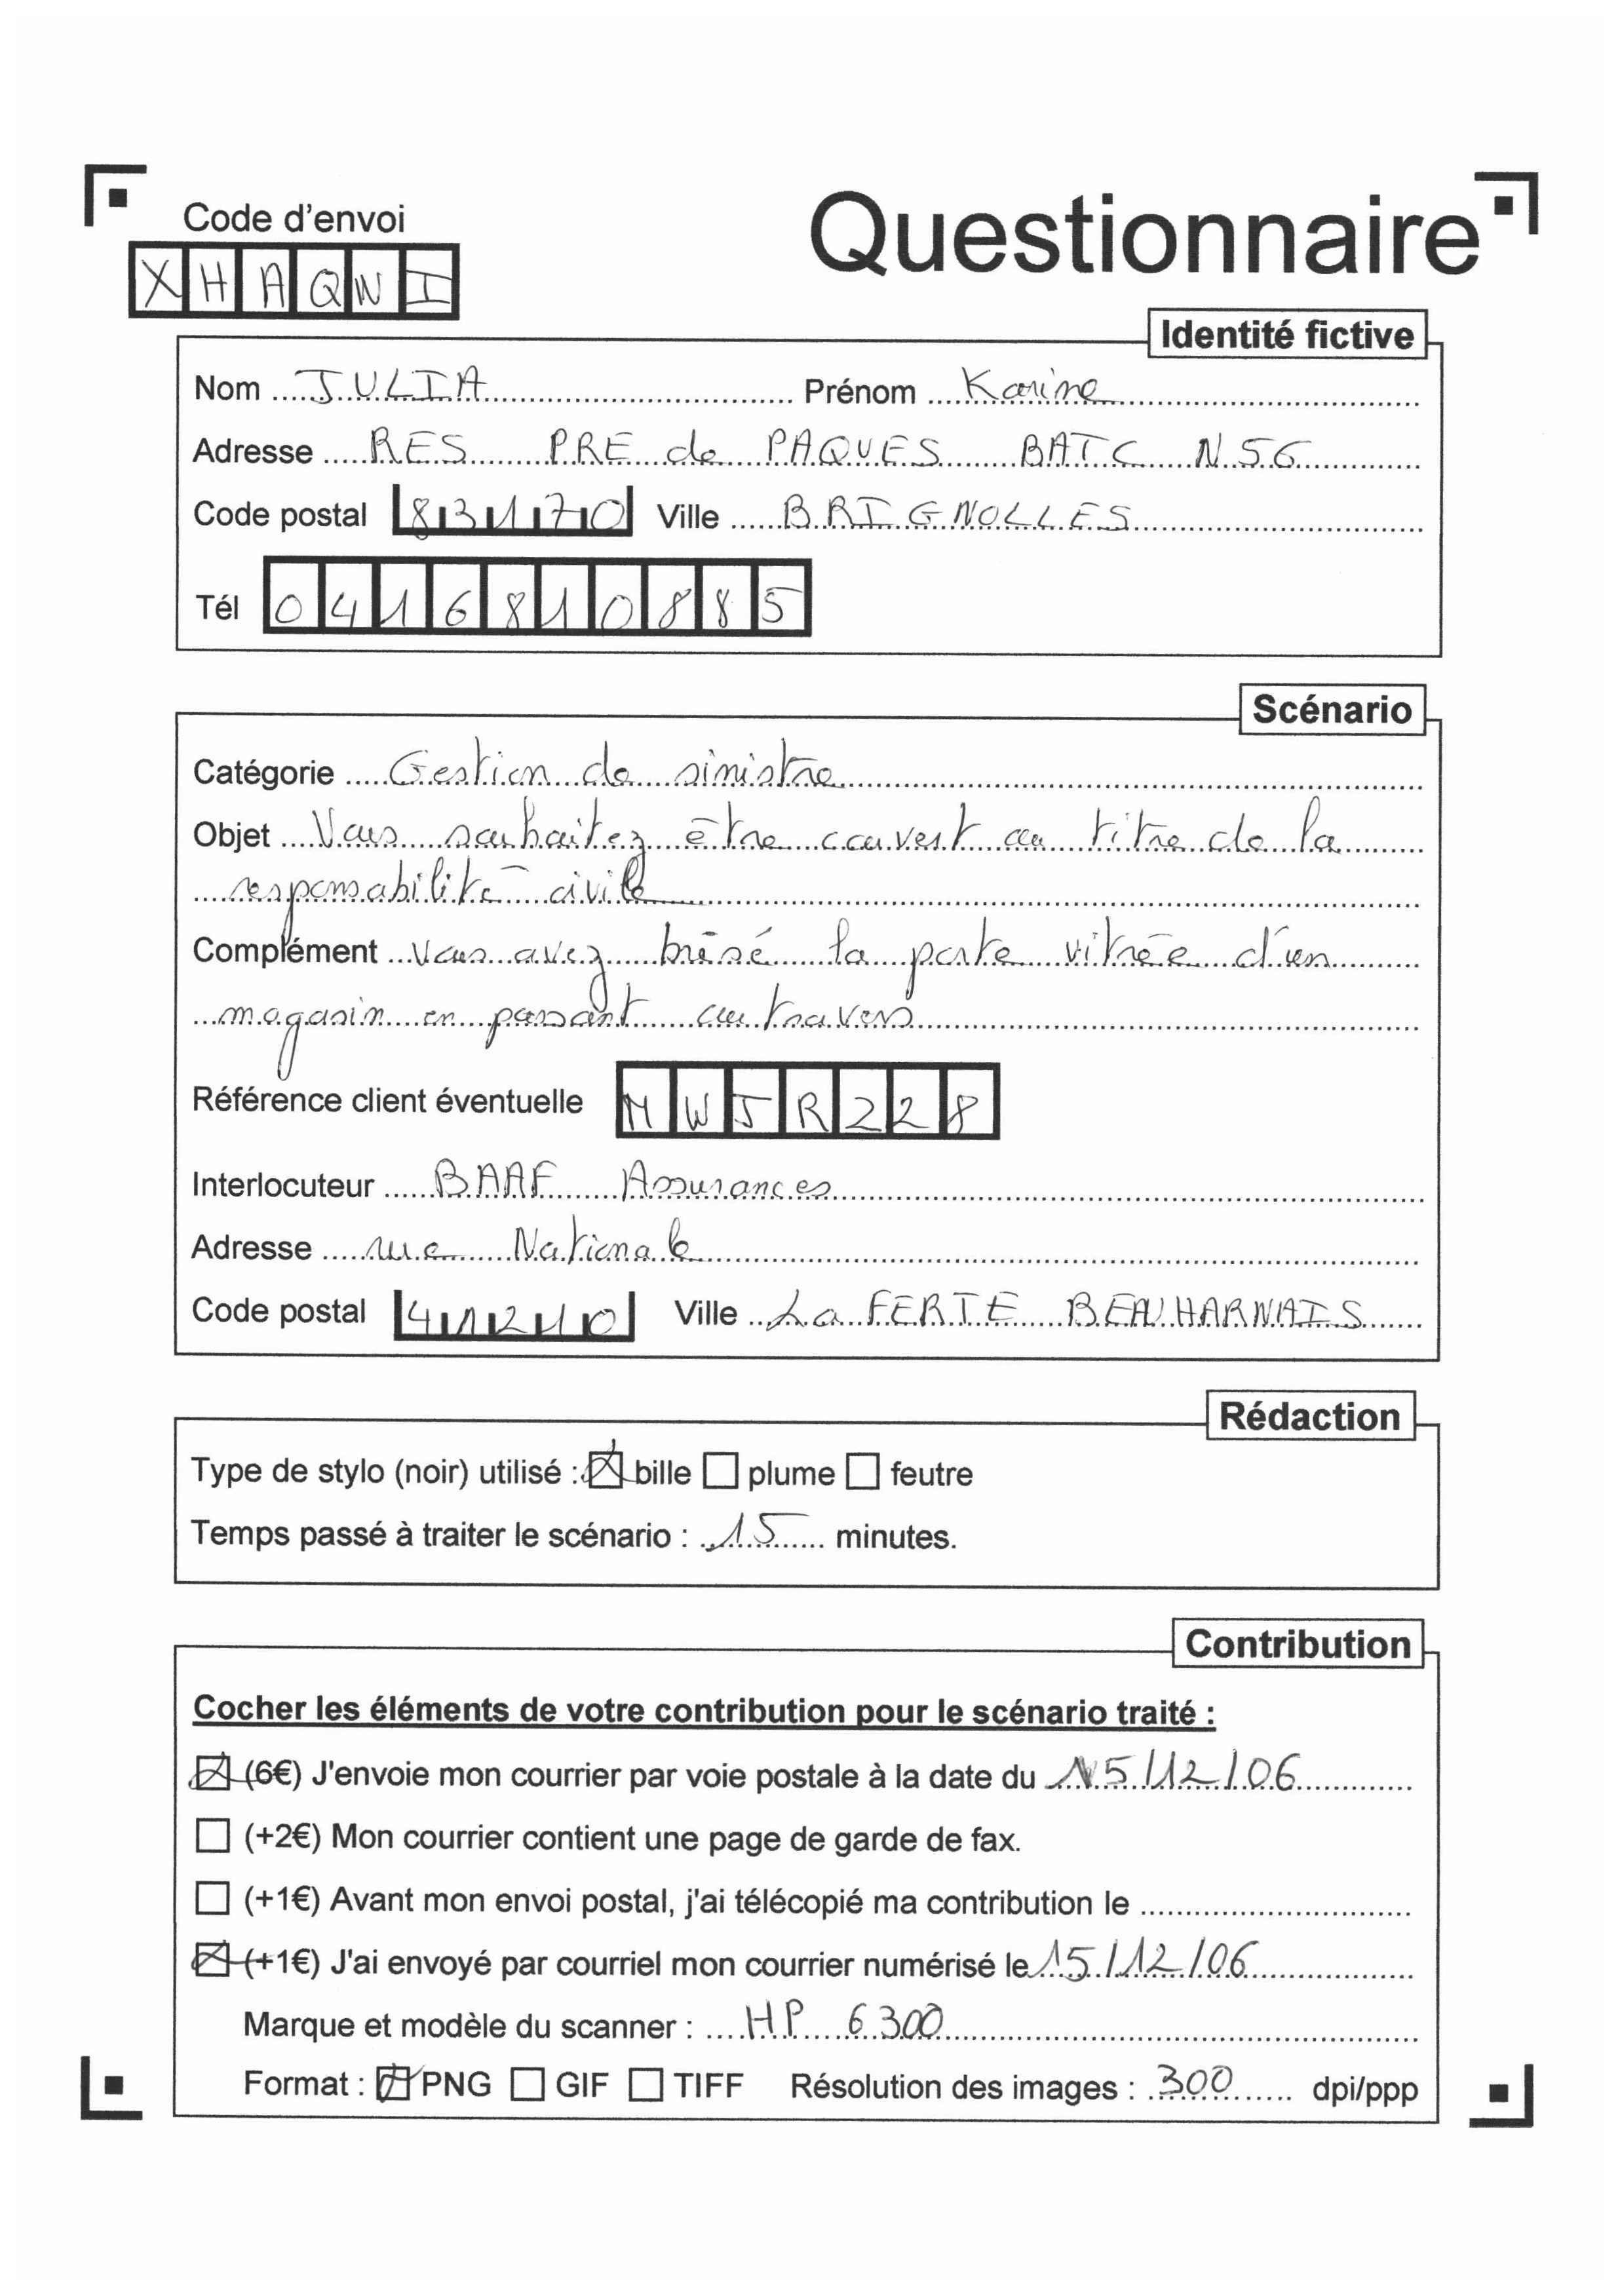 Questionnaire
Code d'envoi
XHAQWI
Identité fictive
Nom JULIA Prénom Karine
Adresse RES PRE de PAQUES BATC N56
Code postal 83170 Ville BRIGNOLLES
Tél 0416810885
Scénario
Catégorie Gestion de sinistre
Objet Vous souhaitez être couvert au titre de la
responsabilité civile
Complément Vous avez brisé la porte vitrée d'un
magasin en passant au travers
Référence client éventuelle MWJR228
Interlocuteur BAAF Assurances
Adresse rue Nationale
Code postal 41210 Ville La FERTE BEAUHARNAIS
Rédaction
Type de stylo (noir) utilisé : ☒ bille ☐ plume ☐ feutre
Temps passé à traiter le scénario : 15 minutes.
Contribution
Cocher les éléments de votre contribution pour le scénario traité :
☒ (6€) J'envoie mon courrier par voie postale à la date du 15/12/06
☐ (+2€) Mon courrier contient une page de garde de fax.
☐ (+1€) Avant mon envoi postal, j'ai télécopié ma contribution le
☒ (+1€) J'ai envoyé par courriel mon courrier numérisé le 15/12/06
Marque et modèle du scanner : HP 6300
Format : ☒ PNG ☐ GIF ☐ TIFF Résolution des images : 300 dpi/ppp